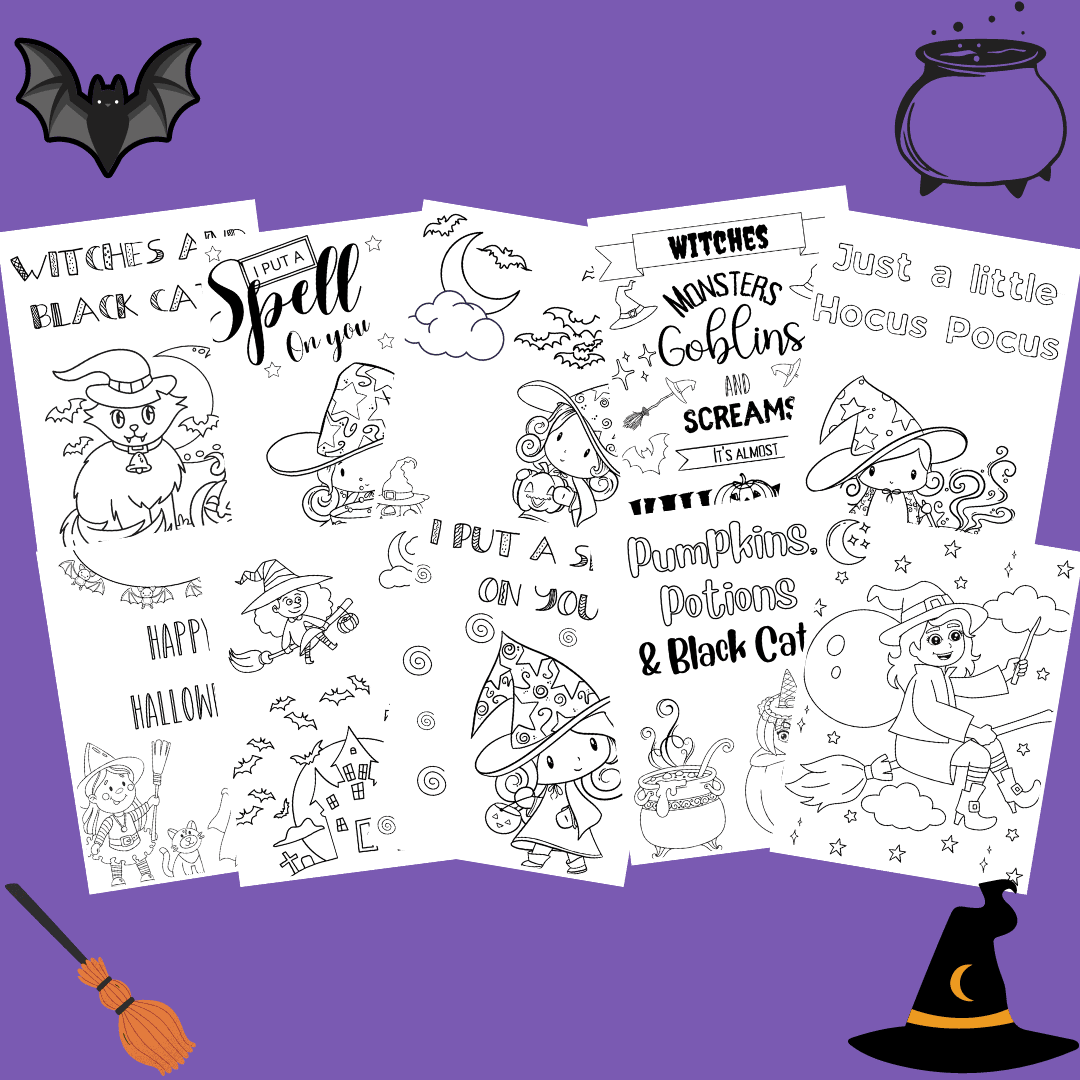 WITCHES AND
BLACK CAT
I PUT A
Spell
On you
WITCHES
MONSTERS
Goblins
AND
SCREAMS
IT'S ALMOST
Just a little
Hocus Pocus
HAPPY
HALLOW
I PUT A S
ON YOU
Pumpkins,
Potions
& Black Cat